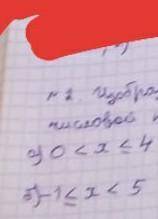 №2. Изобра
числовой
а) 0 < x ≤ 4
б) -1 ≤ x < 5